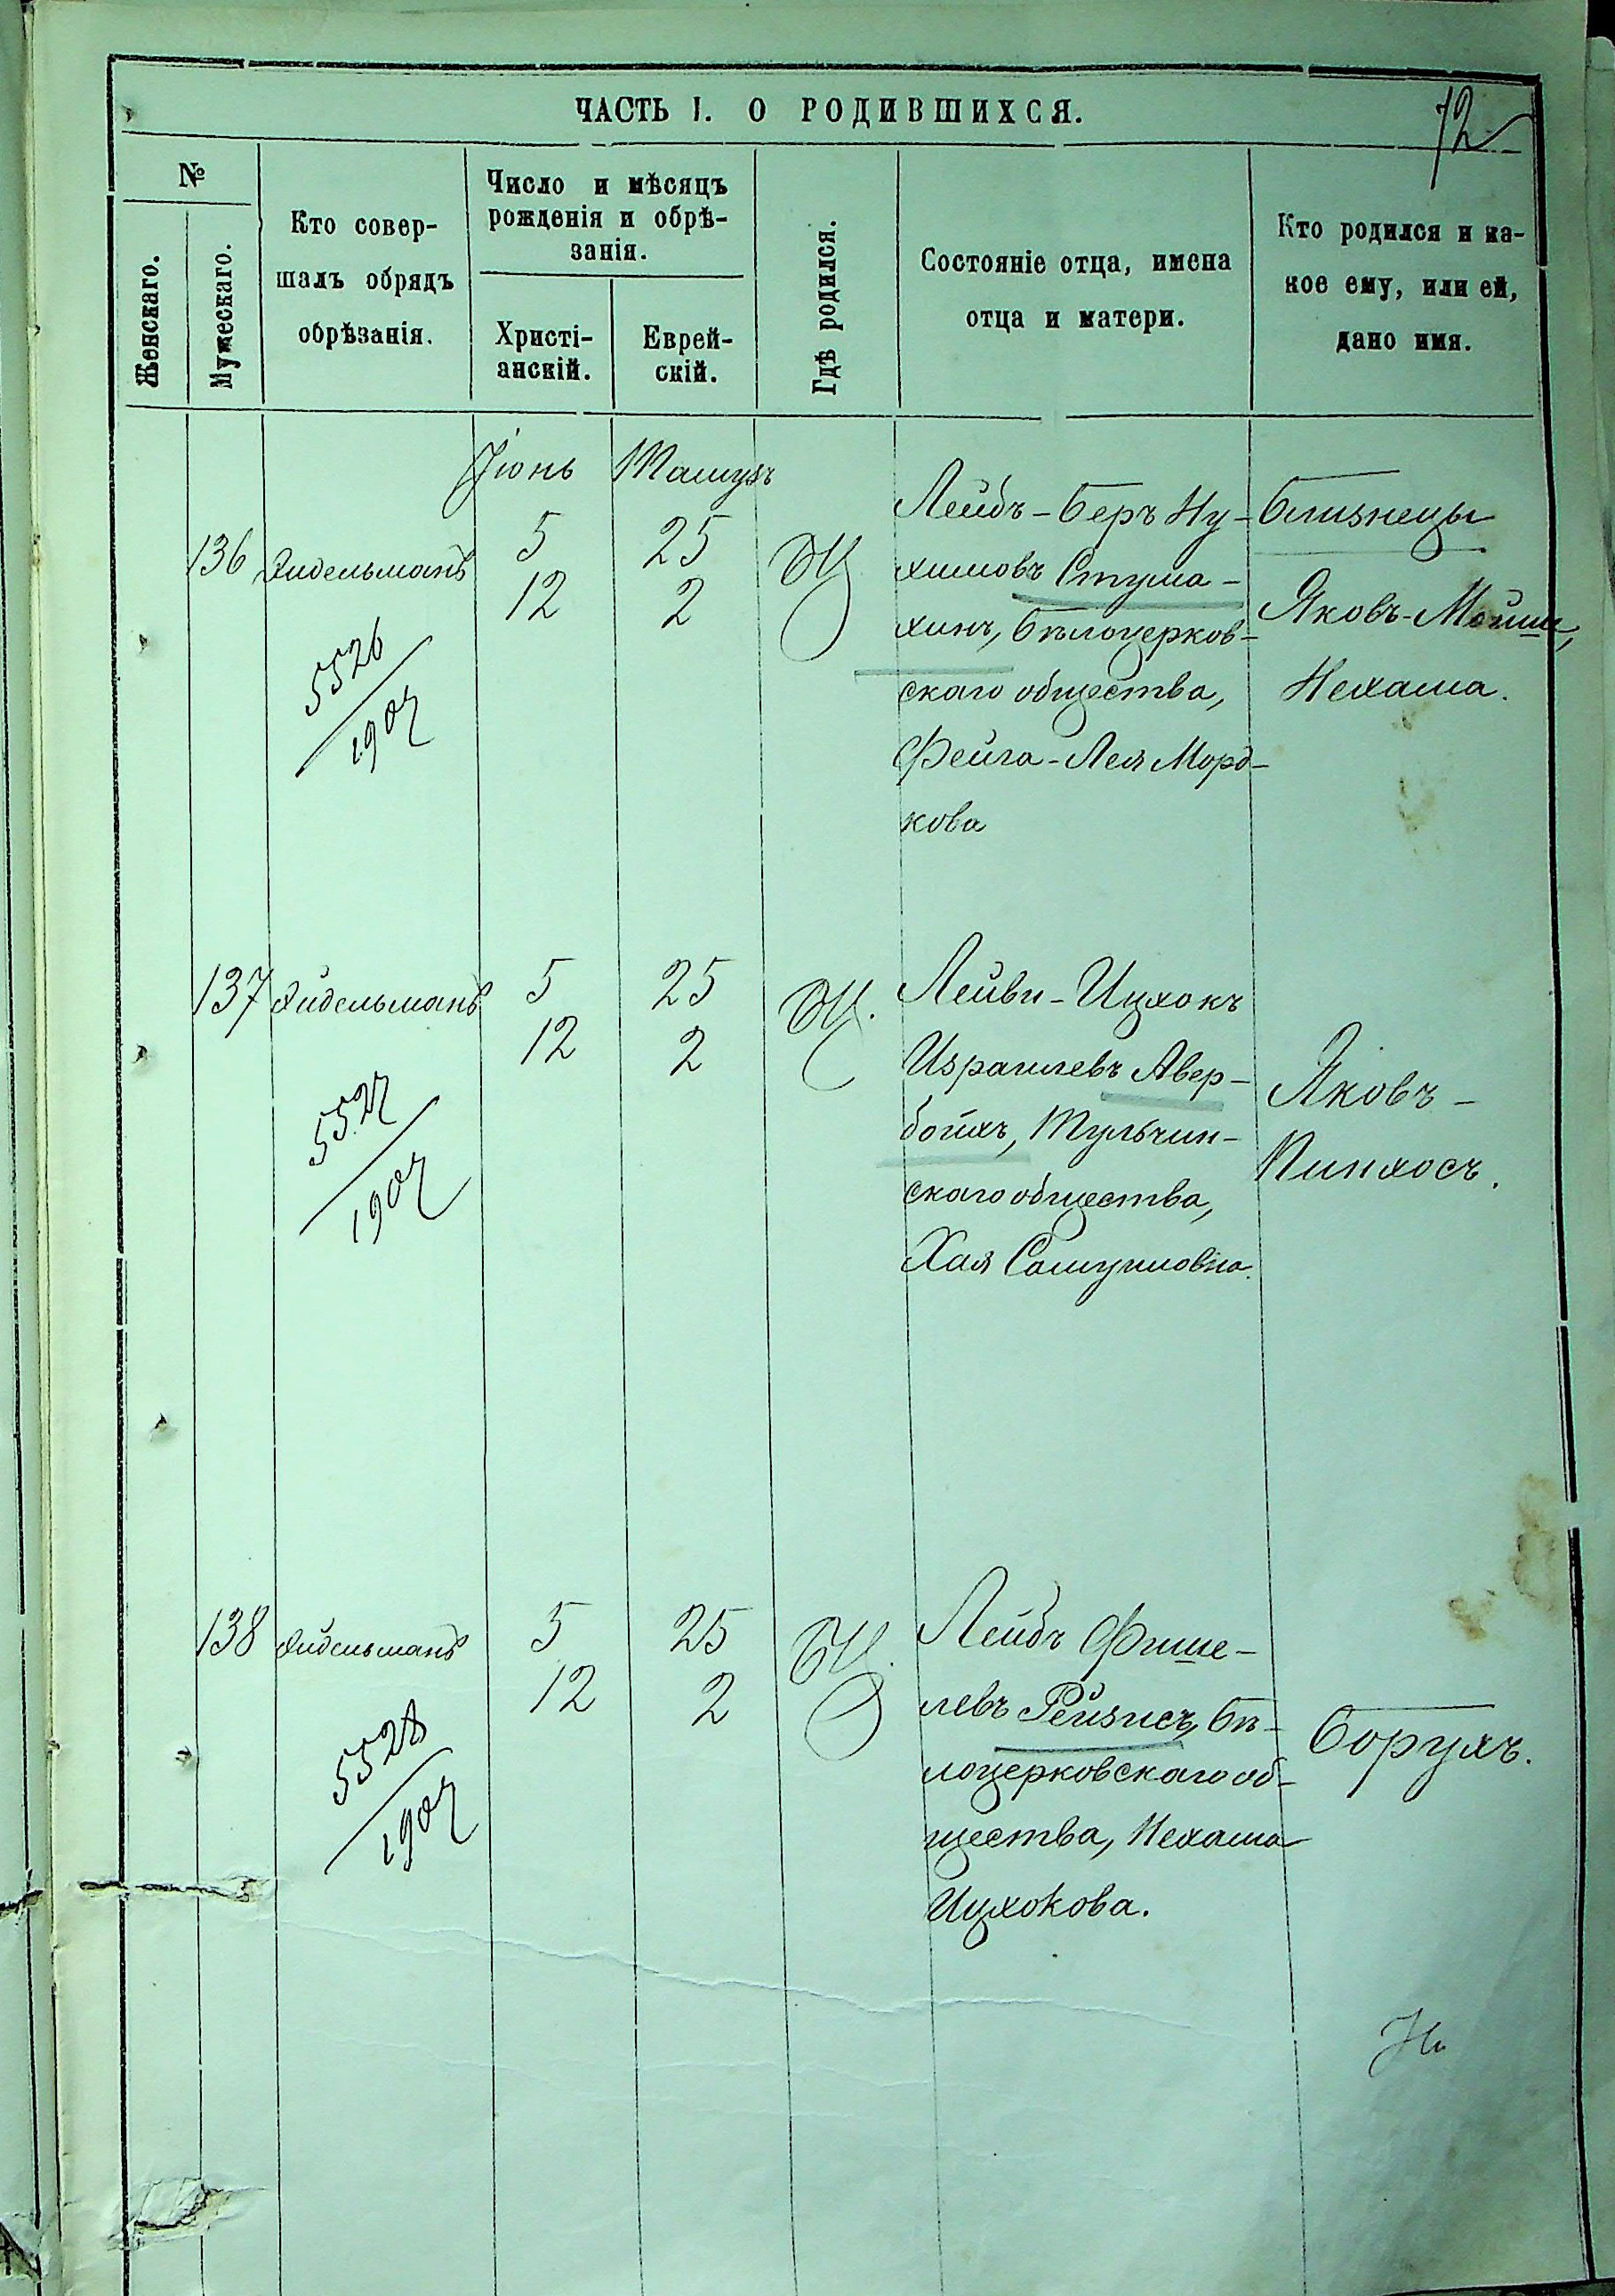 ЧАСТЬ I. О РОДИВШИХСЯ.
72
№
Женскаго.
Мужескаго.
Кто совер-
шалъ обрядъ
обрѣзанія.
Число и мѣсяцъ
рожденія и обрѣ-
занія.
Христі-
анскій.
Еврей-
скій.
Гдѣ родился.
Состояніе отца, имена
отца и матери.
Кто родился и ка-
кое ему, или ей,
дано имя.
Іюнь Тамузъ
136
5 25
12 2
БЦ
5526
1907
Лейбъ-Беръ Ну-
химовъ Стума-
хинъ, Бѣлоцерков-
скаго общества,
Фейга-Лея Морд-
кова
Близнецы
Яковъ-Мойше,
Нехама.
137
5 25
12 2
БЦ.
5527
1907
Лейви-Ицхокъ
Израилевъ Авер-
бойхъ, Тульчин-
скаго общества,
Хая Самуиловна.
Яковъ-
Пинхосъ.
138
5 25
12 2
БЦ.
5528
1907
Лейбъ Фише-
левъ Рейзисъ, Бѣ-
лоцерковскаго об-
щества, Нехама
Ицхокова.
Борухъ.